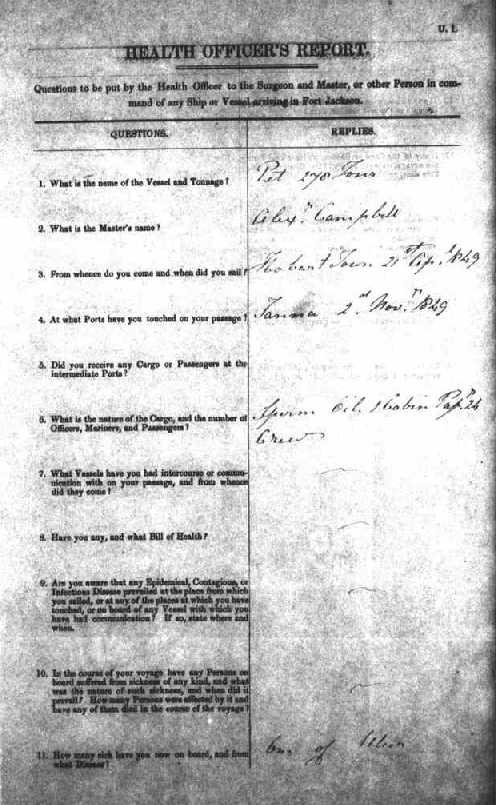 U. 1.
HEALTH OFFICER'S REPORT.
Questions to be put by the Health Officer to the Surgeon and Master, or other Person in com-
mand of any Ship or Vessel arriving in Port Jackson.
QUESTIONS. REPLIES.
1. What is the name of the Vessel and Tonnage? Pet 270 Tons
2. What is the Master's name? Alexr. Campbell
3. From whence do you come and when did you sail? Hobart Town 21st Apl. 1849
4. At what Ports have you touched on your passage? Tanna 2nd Novr. 1849
5. Did you receive any Cargo or Passengers at the
intermediate Ports?
6. What is the nature of the Cargo, and the number of Sperm Oil. 1 Cabin Pasr. 24
Officers, Mariners, and Passengers? Crew
7. What Vessels have you had intercourse or commu-
nication with on your passage, and from whence
did they come?
8. Have you any, and what Bill of Health?
9. Are you aware that any Epidemical, Contagious, or
Infectious Disease prevailed at the place from which
you sailed, or at any of the places at which you have
touched, or on board of any Vessel with which you
have had communication? If so, state where and
when.
10. In the course of your voyage have any Persons on
board suffered from sickness of any kind, and what
was the nature of such sickness, and when did it
prevail? How many Persons were affected by it and
have any of them died in the course of the voyage?
11. How many sick have you now on board, and from One of
what Disease?